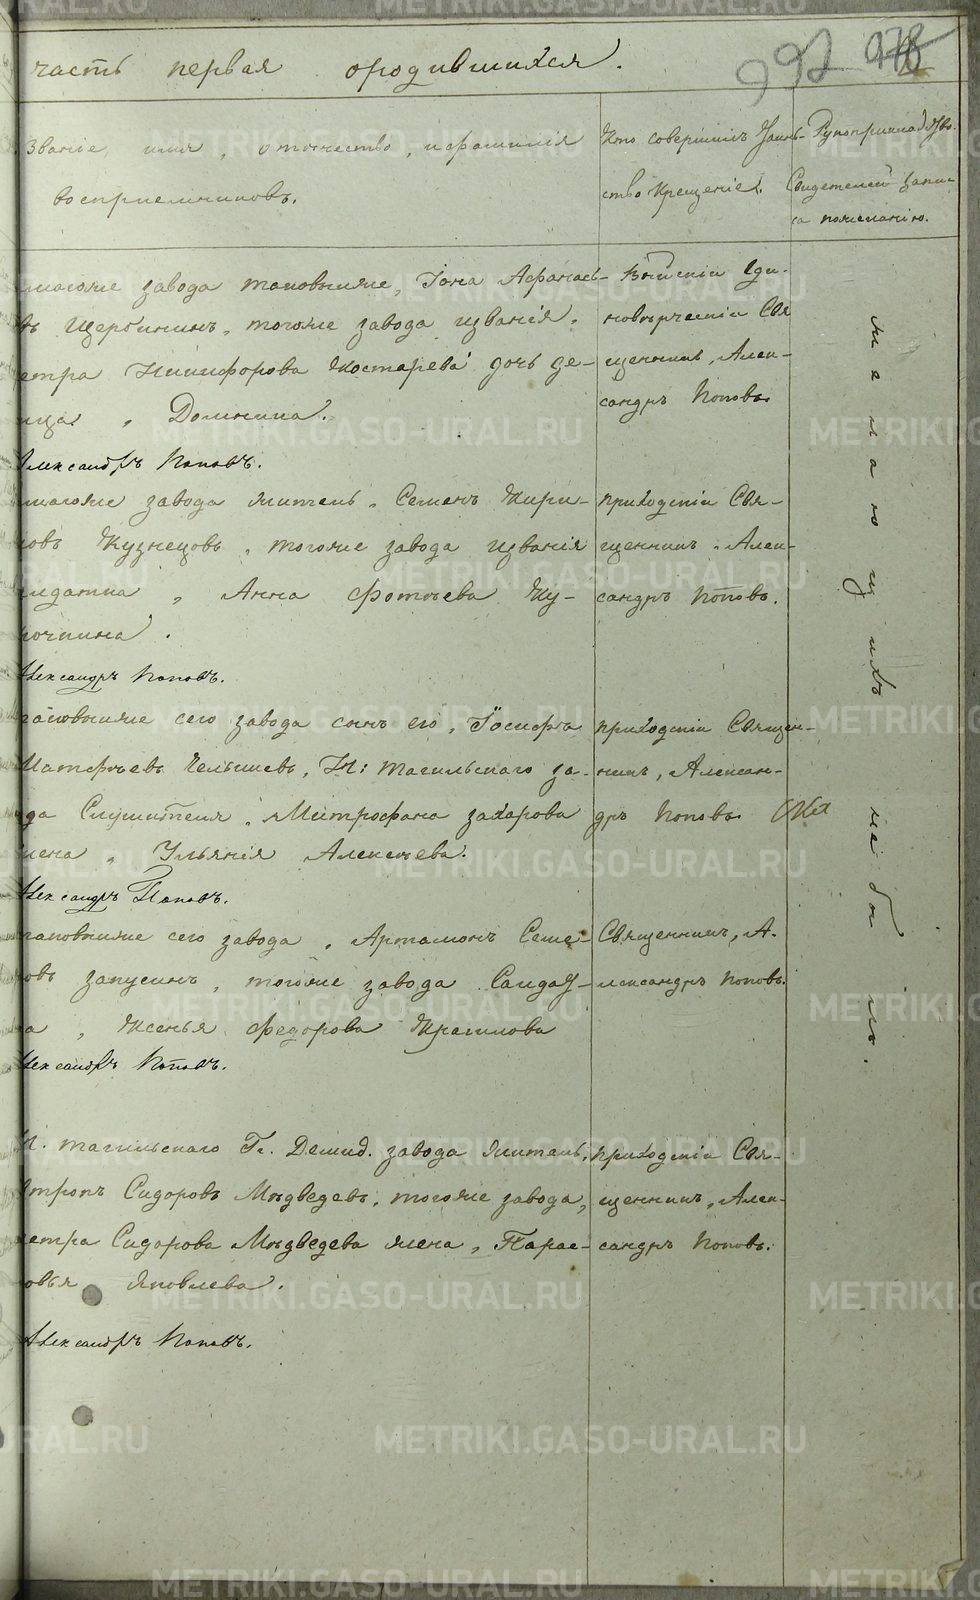 часть первая ородившихся.
992 978
Званіе, имя, отчество, ифамилія
воспріемниковъ.
Кто совершилъ Таин-
ство Крещенія.
Рукоприкладство
Свидетелей запи-
са пожеланію.
завода таковыеже, Іона Афанась-
въ Щербининъ, тогоже завода изванія
етра Никифорова Костарева дочь де-
ица, Домнина.
лександръ Поповъ.
Выйскій Еди-
новѣрческій Свя
щенникъ, Алек-
сандръ Поповъ
тагоже завода житель, Семенъ Кири-
ловъ Кузнецовъ, тогоже завода изванія
лдатка, Анна Фотѣева Ку-
рочкина.
лександръ Поповъ.
приходскій Свя-
щенникъ, Алек-
сандръ Поповъ.
таковыеже сего завода сынъ его, Іосифъ
Матфѣевъ Челышевъ, Н: тагильскаго за-
да Служителя, Митрофана захарова
жена, Ульянія Алексѣева.
лександръ Поповъ.
приходскій Священ-
никъ, Алексан-
дръ Поповъ
таковыеже сего завода, Артамонъ Семе-
овъ запусинъ, тогоже завода Салдат-
ка, Ксенья Федорова Крашлова
лександръ Поповъ.
Священникъ, А-
лександръ Поповъ.
Н. тагильскаго Гг. Демид. завода житель,
Сидоровъ Медведевъ, тогоже завода,
Петра Сидорова Медведева жена, Парас-
овья Яковлева.
Александръ Поповъ.
приходскій Свя-
щенникъ, Алек-
сандръ Поповъ.
желающихъ не былъ.
METRIKI.GASO-URAL.RU